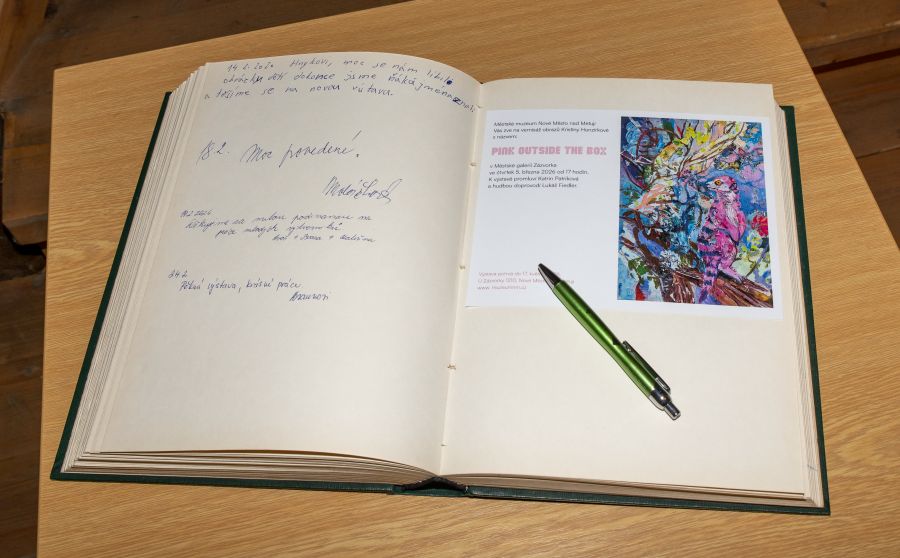 14.2.2026 moc se nám líbilo
obrázky dětí dokonce jsme
a těšíme se na novou výstavu.
18.2. Moc povedené!
Děkujeme za milou podívanou na
práce mladých výtvarníků
24.2.
Pěkná výstava, krásné práce
Městské muzeum Nové Město nad Metují
Vás zve na vernisáž obrazů Kristiny Hunzirkové
s názvem:
PINK OUTSIDE THE BOX
v Městské galerii Zázvorka
ve čtvrtek 5. března 2026 od 17 hodin.
K výstavě promluví Katrin Patriková
a hudbou doprovodí Lukáš Fiedler.
Výstava potrvá do 17.
U Zázvorky 1210, Nové Měst
www.